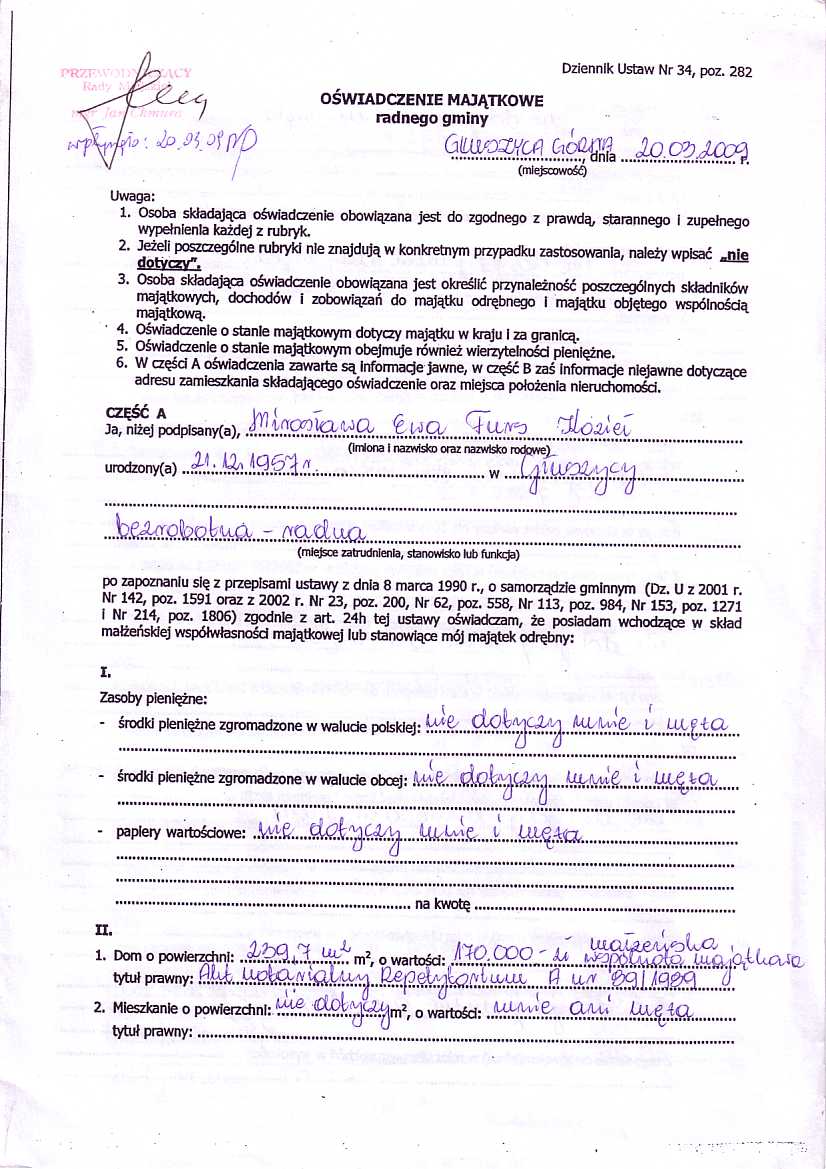 Dziennik Ustaw Nr 34, poz. 282
PRZEWODNICZĄCY
Rady
mgr Jan Chmura
wpłynęło: 20.03.09
OŚWIADCZENIE MAJĄTKOWE
radnego gminy
GŁUSZYCA GÓRNA, dnia 20.03.2009 r.
(miejscowość)
Uwaga:
1. Osoba składająca oświadczenie obowiązana jest do zgodnego z prawdą, starannego i zupełnego
wypełnienia każdej z rubryk.
2. Jeżeli poszczególne rubryki nie znajdują w konkretnym przypadku zastosowania, należy wpisać „nie
dotyczy".
3. Osoba składająca oświadczenie obowiązana jest określić przynależność poszczególnych składników
majątkowych, dochodów i zobowiązań do majątku odrębnego i majątku objętego wspólnością
majątkową.
4. Oświadczenie o stanie majątkowym dotyczy majątku w kraju i za granicą.
5. Oświadczenie o stanie majątkowym obejmuje również wierzytelności pieniężne.
6. W części A oświadczenia zawarte są informacje jawne, w część B zaś informacje niejawne dotyczące
adresu zamieszkania składającego oświadczenie oraz miejsca położenia nieruchomości.
CZĘŚĆ A
Ja, niżej podpisany(a), Mirosława Ewa Furs
(imiona i nazwisko oraz nazwisko rodowe)
urodzony(a) 21.12.1957 r. w Głuszycy
bezrobotna - radna
(miejsce zatrudnienia, stanowisko lub funkcja)
po zapoznaniu się z przepisami ustawy z dnia 8 marca 1990 r., o samorządzie gminnym (Dz. U z 2001 r.
Nr 142, poz. 1591 oraz z 2002 r. Nr 23, poz. 200, Nr 62, poz. 558, Nr 113, poz. 984, Nr 153, poz. 1271
i Nr 214, poz. 1806) zgodnie z art. 24h tej ustawy oświadczam, że posiadam wchodzące w skład
małżeńskiej współwłasności majątkowej lub stanowiące mój majątek odrębny:
I.
Zasoby pieniężne:
- środki pieniężne zgromadzone w walucie polskiej: nie dotyczy mnie i męża
- środki pieniężne zgromadzone w walucie obcej: nie dotyczy mnie i męża
- papiery wartościowe: nie dotyczy mnie i męża
na kwotę
II.
małżeńska
1. Dom o powierzchni: 239,7 m² m², o wartości: 170.000 - zł wspólnota majątkowa
tytuł prawny: Akt notarialny Repetytorium A nr 89/1989
2. Mieszkanie o powierzchni: nie dotyczy m², o wartości: mnie ani męża
tytuł prawny: